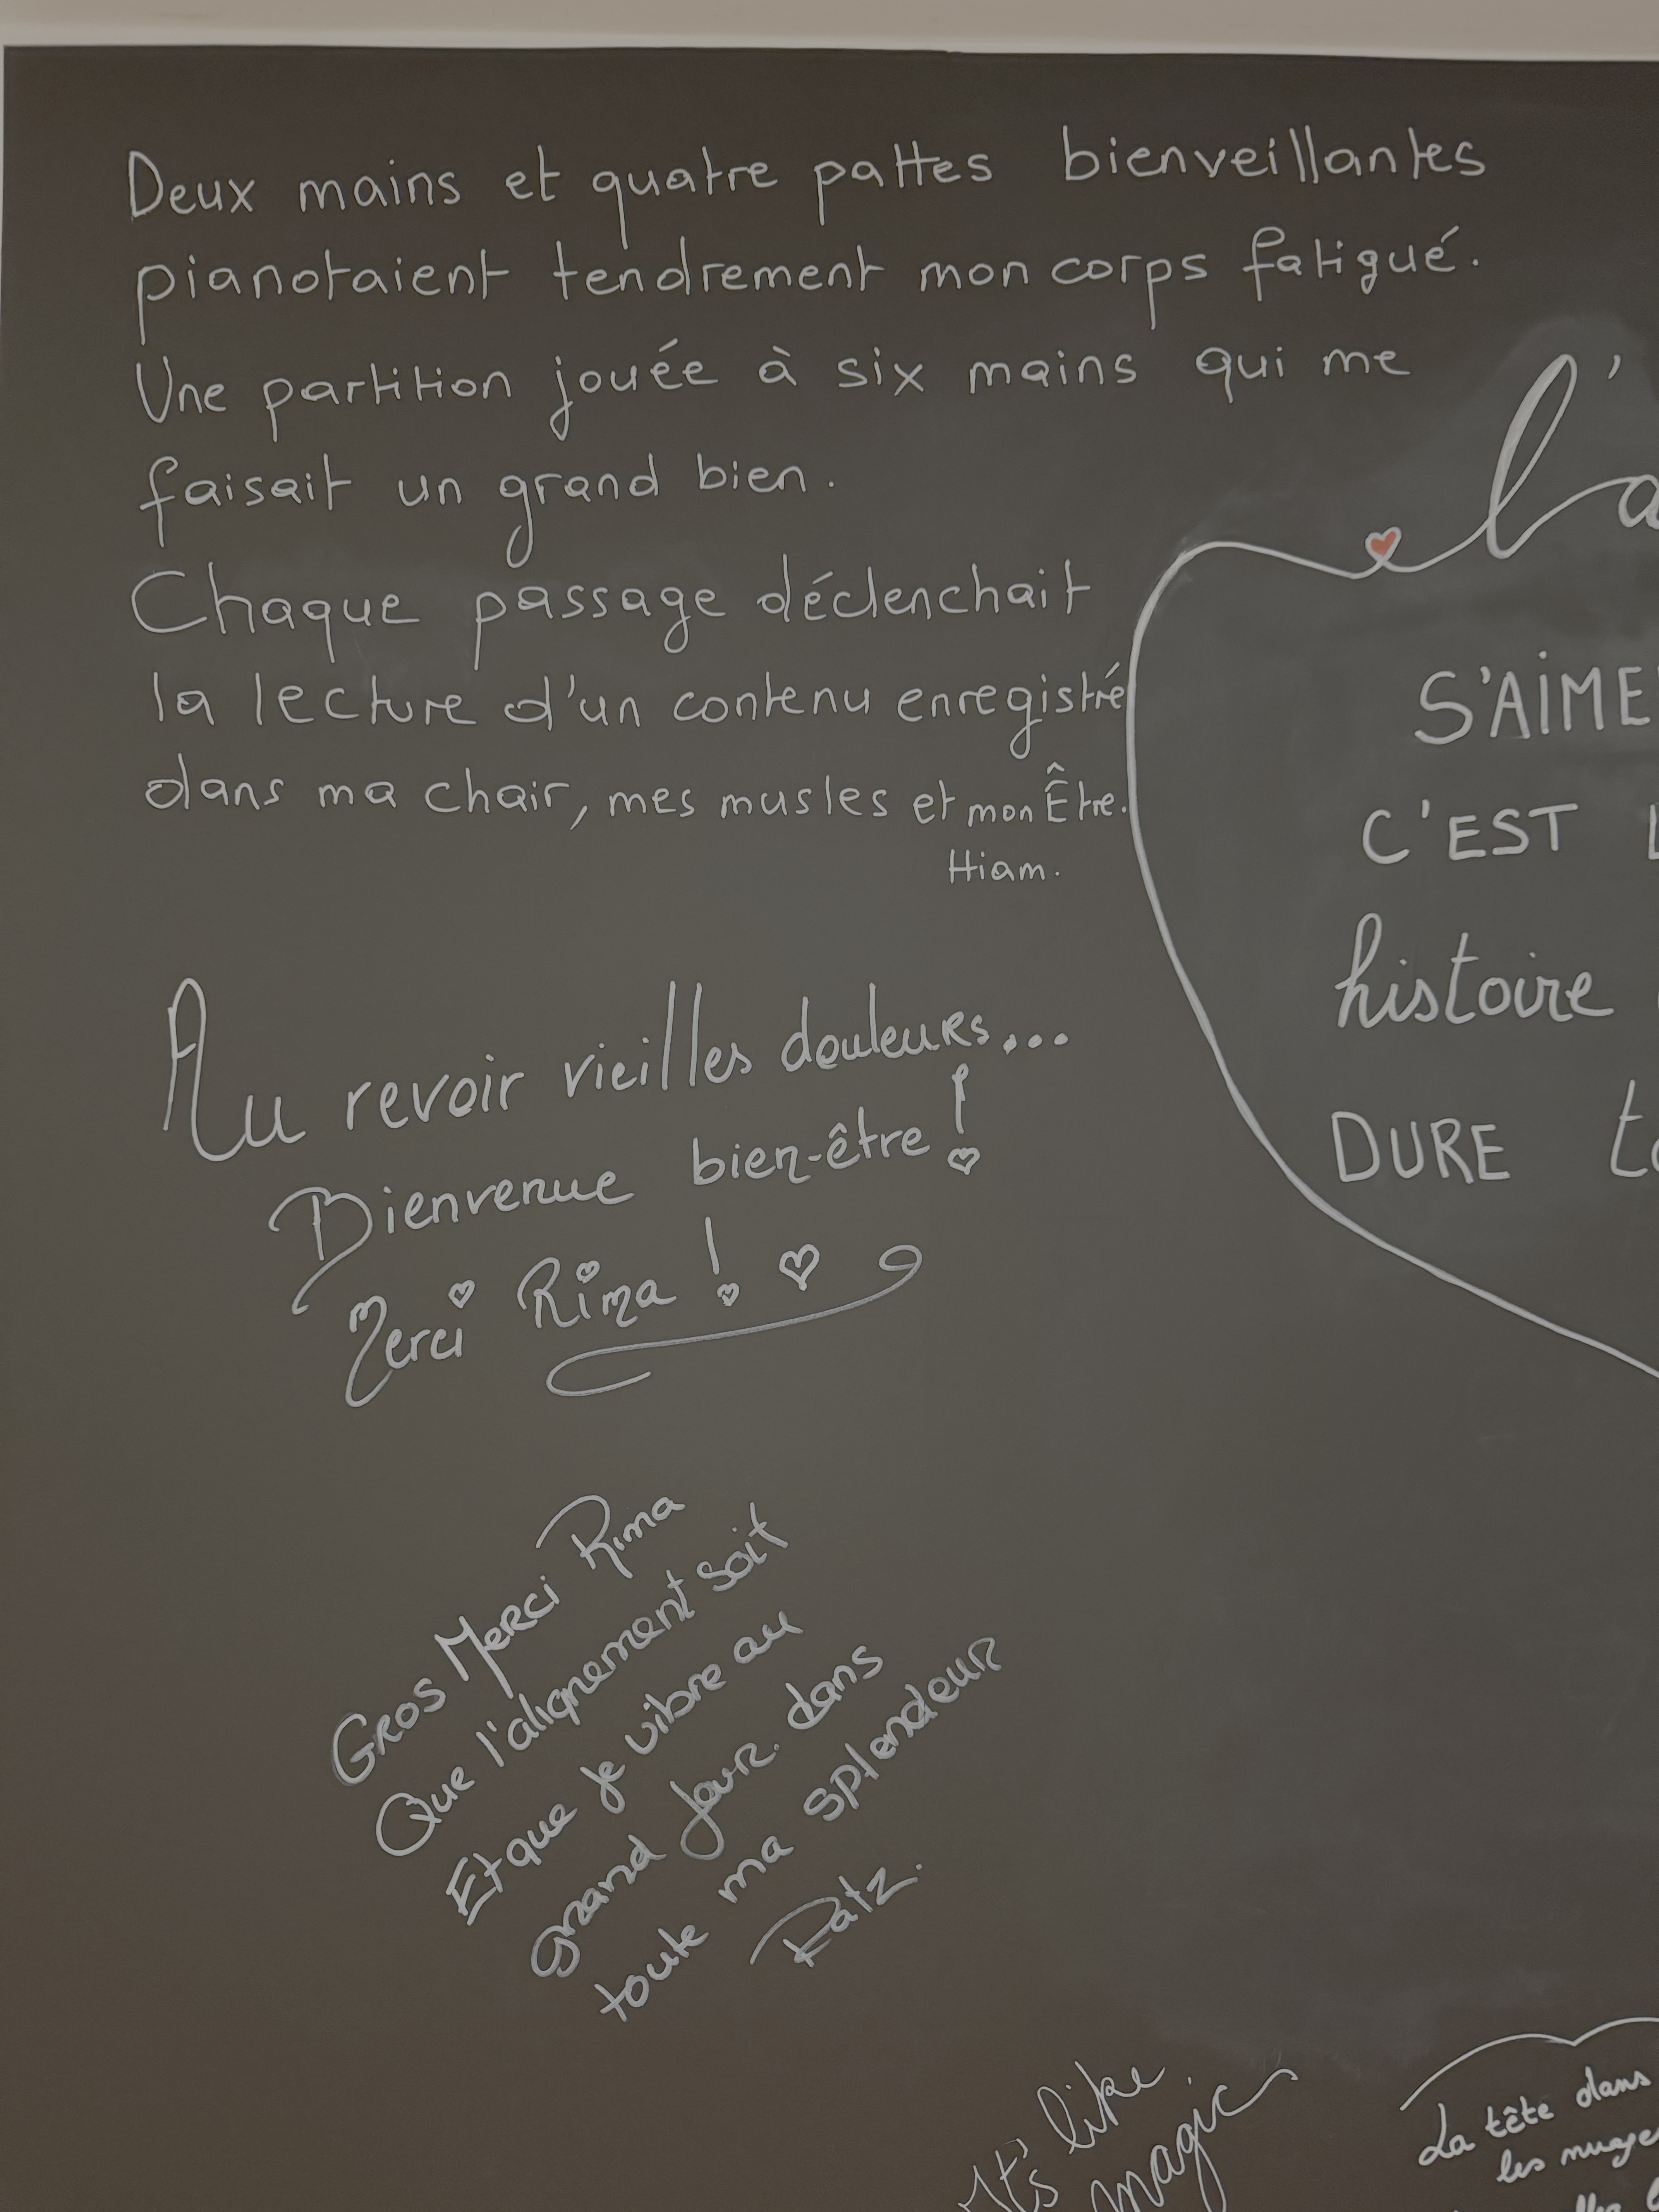 Deux mains et quatre pattes bienveillantes
pianotaient tendrement mon corps fatigué.
Une partition jouée à six mains qui me
faisait un grand bien.
Chaque passage déclenchait
la lecture d'un contenu enregistré
dans ma chair, mes musles et mon Être.
Hiam.
Au revoir vieilles douleurs...
Bienvenue bien-être !
Merci Rima !
Gros Merci Rima
Que l'alignement soit
Et que je vibre au
grand jour. dans
toute ma splendeur
Ratz.
l'a
S'AIME
C'EST L
histoire
DURE to
It's like
magic
La tête dans
les nuage